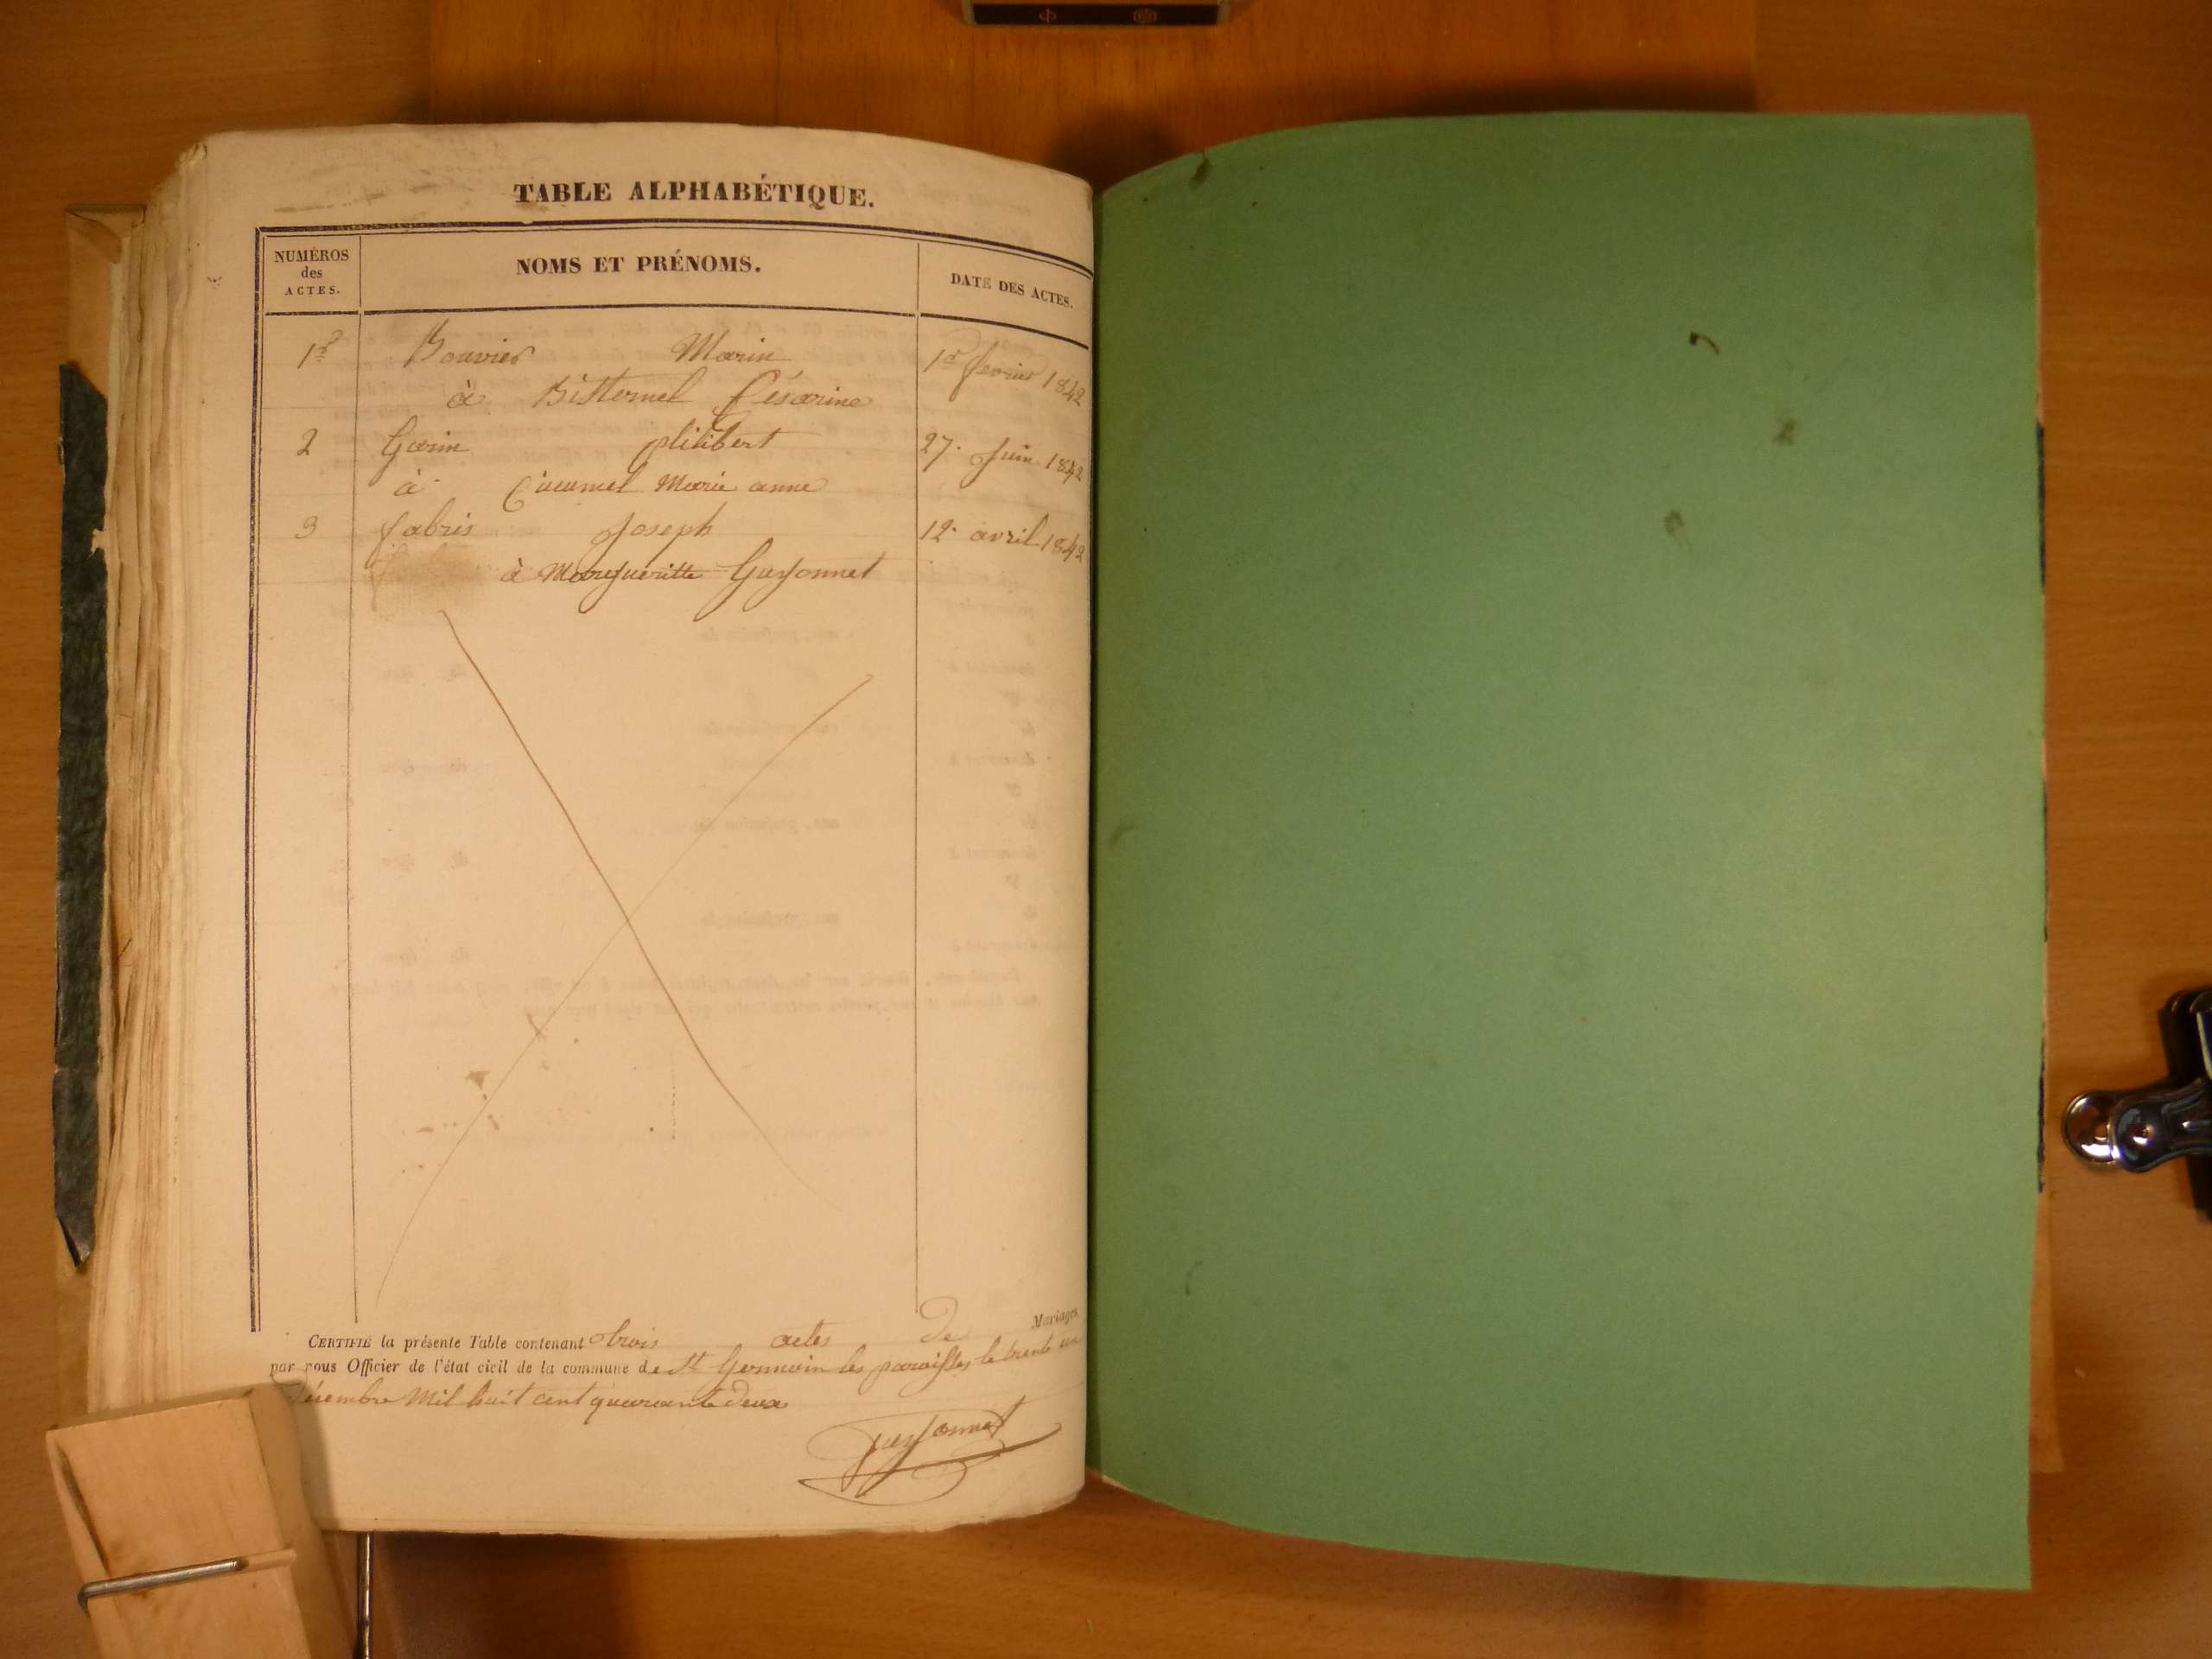 TABLE ALPHABÉTIQUE.
NUMÉROS
des
ACTES.
NOMS ET PRÉNOMS.
DATE DES ACTES.
1er Bouvier Marin 1er fevrier 1842
à Césarine
2 Garin philibert 27. Juin 1842
à Marie anne
3 fabris Joseph 12. avril 1842
à Margueritte Guysonnet
CERTIFIÉ la présente Table contenant trois actes de Mariages
par nous Officier de l'état civil de la commune de St Germain les paroisses le trente un
Décembre Mil huit cent quarante deux
Guysonnet